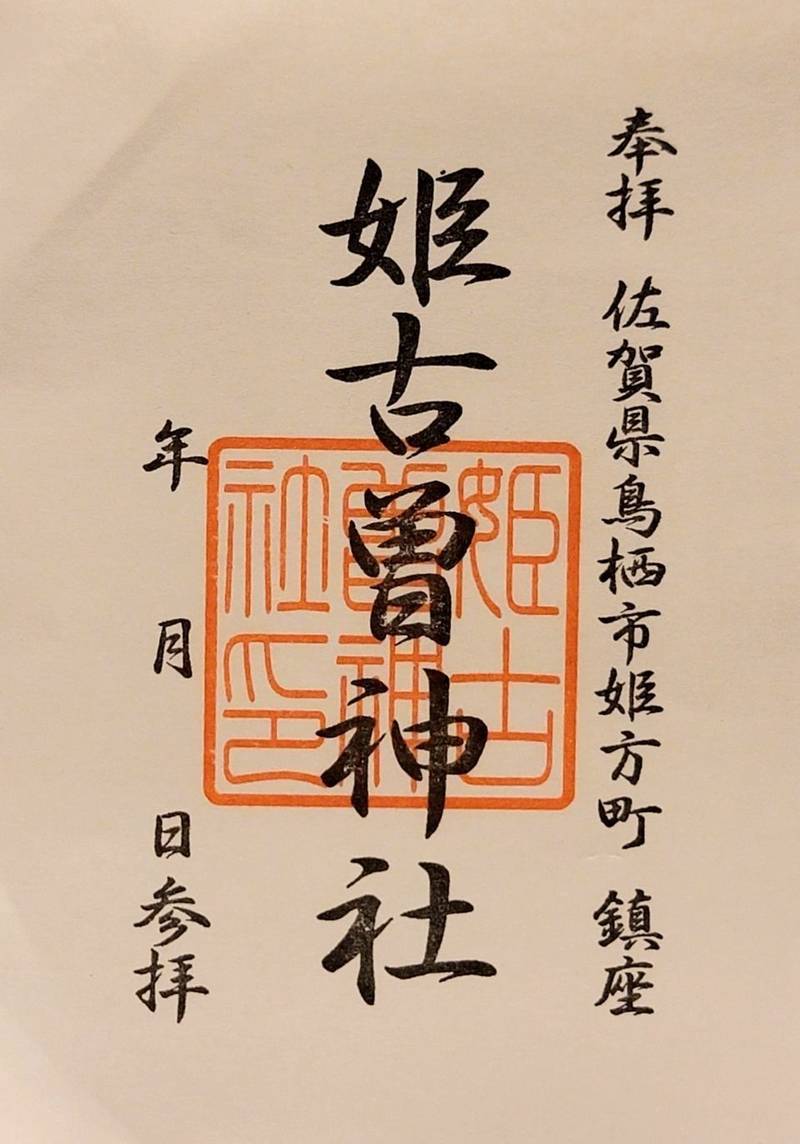 奉拝 佐賀県鳥栖市姫方町 鎮座
姫古曽神社
姫古
曽神
社印
年 月 日参拝